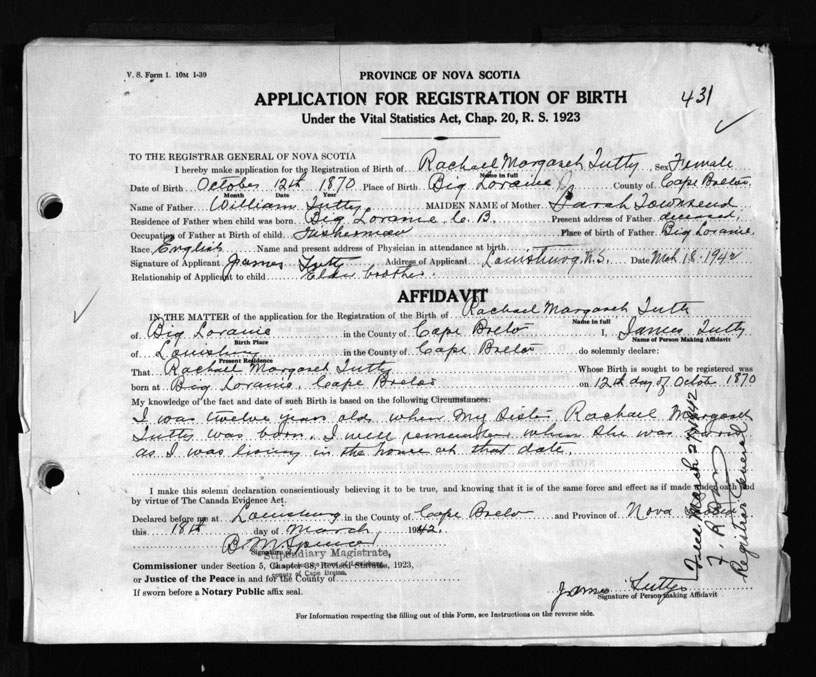 V. S. Form 1. 10M 1-39
PROVINCE OF NOVA SCOTIA
APPLICATION FOR REGISTRATION OF BIRTH
431
Under the Vital Statistics Act, Chap. 20, R. S. 1923
TO THE REGISTRAR GENERAL OF NOVA SCOTIA
I hereby make application for the Registration of Birth of Rachael Margaret Tutty Sex Female
Name in full
Date of Birth October 12th 1870 Place of Birth Big Loraine County of Cape Breton
Month Date Year
Name of Father William Tutty MAIDEN NAME of Mother Sarah Townsend
Residence of Father when child was born Big Loraine C. B. Present address of Father deceased
Occupation of Father at Birth of child Fisherman Place of birth of Father Big Loraine
Race English Name and present address of Physician in attendance at birth
Signature of Applicant James Tutty Address of Applicant Louisburg N.S. Date Mch 18-1942
Relationship of Applicant to child Elder brother
AFFIDAVIT
IN THE MATTER of the application for the Registration of the Birth of Rachael Margaret Tutty
Name in full
of Big Loraine in the County of Cape Breton I, James Tutty
Birth Place Name of Person Making Affidavit
of Louisburg in the County of Cape Breton do solemnly declare:
Present Residence
That Rachael Margaret Tutty Whose Birth is sought to be registered was
born at Big Loraine, Cape Breton on 12th day of October 1870
My knowledge of the fact and date of such Birth is based on the following Circumstances:
I was twelve years old when my sister Rachael Margaret
Tutty was born. I well remember when she was born
as I was living in the house at that date.
I make this solemn declaration conscientiously believing it to be true, and knowing that it is of the same force and effect as if made under oath and
by virtue of The Canada Evidence Act.
Declared before me at Louisburg in the County of Cape Breton and Province of Nova Scotia
this 18th day of March 1942.
Signature of
Stipendiary Magistrate,
Commissioner under Section 5, Chapter 38, Revised Statutes, 1923,
or Justice of the Peace in and for the County of
County of Cape Breton.
If sworn before a Notary Public affix seal.
James Tutty
Signature of Person making Affidavit
For Information respecting the filling out of this Form, see Instructions on the reverse side.
Filed March 27 1942
Registrar General